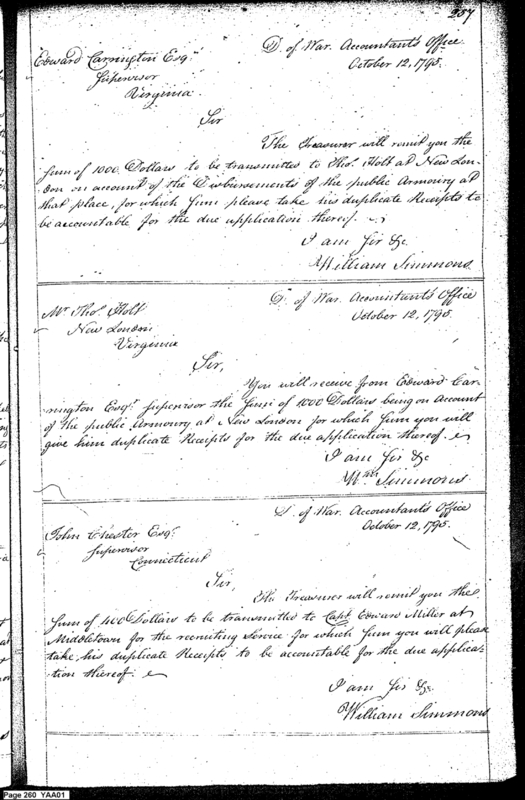 257
D. of War. Accountant's Office
October 12, 1795.
Edward Carrington Esqr.
Supervisor
Virginia.
Sir
The Treasurer will remit you the
sum of 1000 Dollars to be transmitted to Thos. Holt at New Lon-
don on account of the Disbursements of the public Armoury at
that place, for which sum please take his duplicate Receipts to
be accountable for the due application thereof.
I am Sir &c
William Simmons
D. of War. Accountant's Office
October 12, 1795.
Mr. Thos. Holt
New London
Virginia
Sir,
You will receive from Edward Car-
rington Esqr. Supervisor the sum of 1000 Dollars being on Account
of the public Armoury at New London for which sum you will
give him duplicate Receipts for the due application thereof.
I am Sir &c
Wm. Simmons
D. of War. Accountant's Office
October 12, 1795.
John Chester Esqr.
Supervisor
Connecticut
Sir,
The Treasurer will remit you the
sum of 400 Dollars to be transmitted to Capt. Edward Miller at
Middletown for the recruiting service for which sum you will please
take his duplicate Receipts to be accountable for the due applica-
tion thereof.
I am Sir &c.
William Simmons
Page 260 YAA01